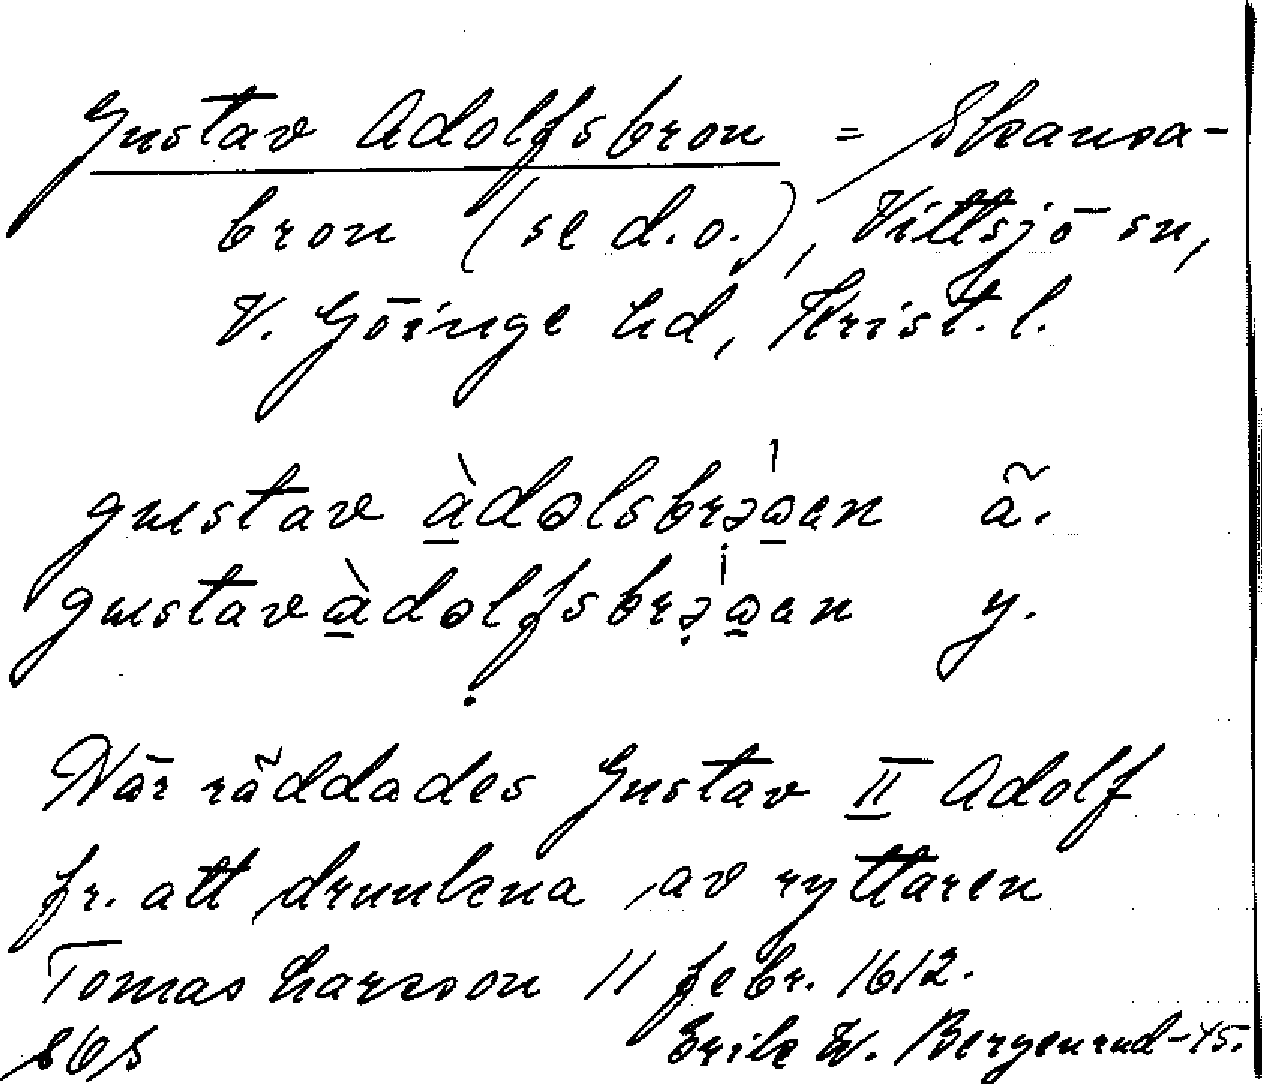 Gustav Adolfsbron = Skansa-
bron (se d.o.), Vittsjö sn,
V. Göinge hd, Krist. l.
gustav àdolsbrəa̲en ã.
gustavàdolfsbrəa̲en y.
Här räddades Gustav II Adolf
fr. att drunkna av ryttaren
Tomas Larsson 11 febr. 1612.
Erik W. Bergenrud -45.